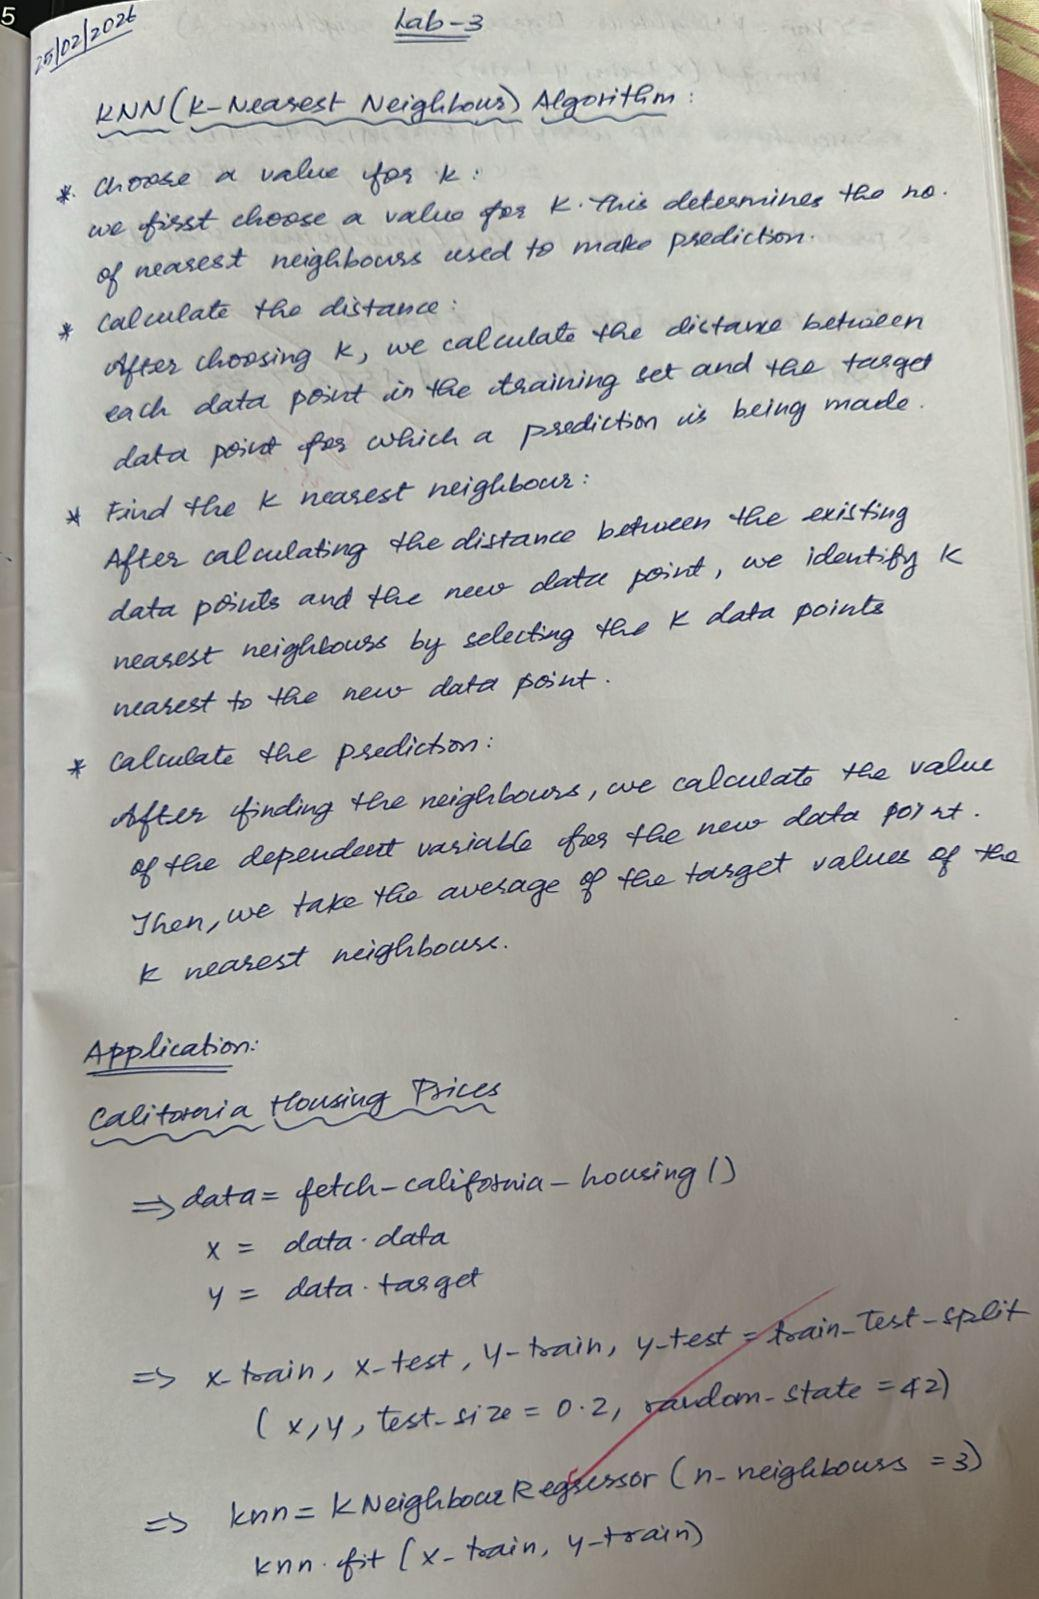 5
25/02/2026
Lab-3
KNN (K-Nearest Neighbour) Algorithm:
* Choose a value for k:
we first choose a value for K. This determines the no.
of nearest neighbours used to make prediction.
* Calculate the distance:
After choosing K, we calculate the distance between
each data point in the training set and the target
data point for which a prediction is being made.
* Find the K nearest neighbour:
After calculating the distance between the existing
data points and the new data point, we identify K
nearest neighbours by selecting the K data points
nearest to the new data point.
* Calculate the prediction:
After finding the neighbours, we calculate the value
of the dependent variable for the new data point.
Then, we take the average of the target values of the
K nearest neighbours.
Application:
California Housing Prices
⇒ data = fetch-california-housing()
x = data.data
y = data.target
⇒ x-train, x-test, y-train, y-test = train-test-split
(x, y, test-size = 0.2, random-state = 42)
⇒ knn = KNeighbourRegressor (n-neighbours = 3)
knn.fit (x-train, y-train)